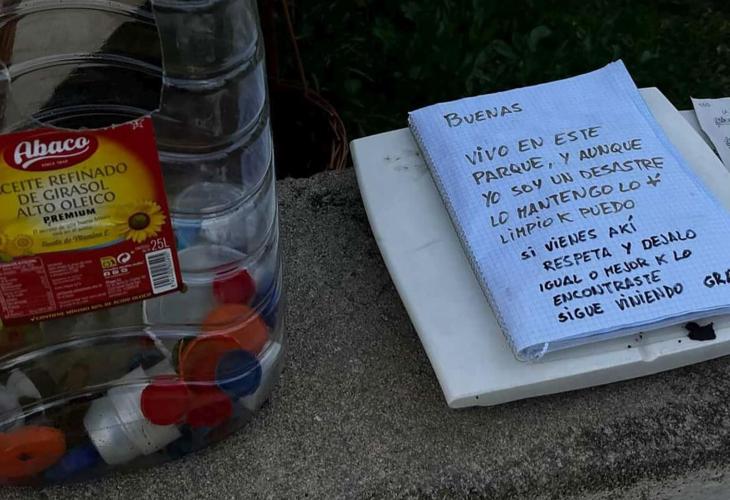 Abaco
SINCE 1947
ACEITE REFINADO
DE GIRASOL
ALTO OLEICO
PREMIUM
25L
BUENAS
VIVO EN ESTE
PARQUE, Y AUNQUE
YO SOY UN DESASTRE
LO MANTENGO LO +
LIMPIO K PUEDO
SI VIENES AKÍ
RESPETA Y DEJALO
IGUAL O MEJOR K LO
ENCONTRASTE
SIGUE VINIENDO GRA